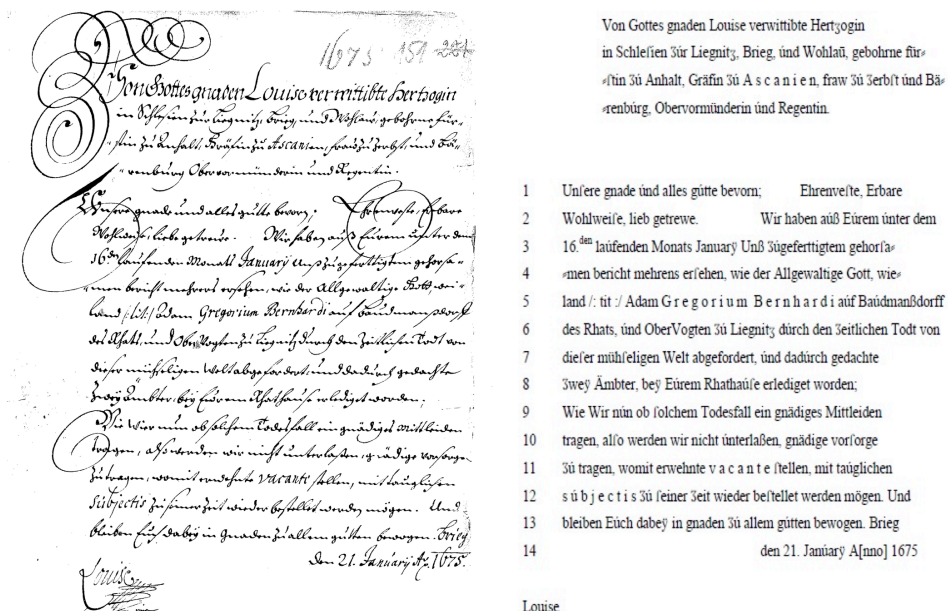 1675 151 221
Von Gottes gnaden Louise verwittibte Hertzogin
in Schlesien zur Liegnitz, Brieg, und Wohlau, gebohrne für-
-stin zu Anhalt, Gräfin zu Ascanien, frau zu Zerbst, und Bä-
-renburg Obervormünderin und Regentin.
Unsere gnade und alles gutte bevorn; Ehrenveste, Erbare
Wohlweise, liebe getreue. Wir haben auß Eurem unter dem
16.den laufenden Monats January Unß zugefertigtem gehorsa-
-men bericht mehrers ersehen, wie der Allgewaltige Gott, wei-
land /:tit:/ Adam Gregorium Bernhardi auf Baudmanßdorff
des Rhats, und OberVogten zu Liegnitz durch den Zeitlichen Todt von
dieser mühseligen Welt abgefordert, und dadurch gedachte
zwey Ämbter, bey Eurem Rhathause erlediget worden;
Wie Wir nun ob solchem Todesfall ein gnädiges Mittleiden
tragen, also werden wir nicht unterlaßen, gnädige vorsorge
zu tragen, womit erwehnte vacante stellen, mit tauglichen
subjectis zu seiner Zeit wieder bestellet werden mögen. Und
bleiben Euch dabey in gnaden zu allem gutten bewogen. Brieg
den 21. January Ao. 1675.
Louise
Von Gottes gnaden Louise verwittibte Hertʒogin
in Schleſien Ʒúr Liegnitʒ, Brieg, únd Wohlaū, gebohrne für⸗
⸗ſtin Ʒú Anhalt, Gräfin Ʒú A s c a n i e n, fraw Ʒú Ʒerbſt únd Bä⸗
⸗renbúrg, Obervormúnderin únd Regentin.
1 Unſere gnade únd alles gútte bevorn; Ehrenveſte, Erbare
2 Wohlweiſe, lieb getrewe. Wir haben aúß Eúrem únter dem
3 16.den laúfenden Monats Januarÿ Unß Ʒúgeferttigtem gehorſa⸗
4 ⸗men bericht mehrens erſehen, wie der Allgewaltige Gott, wie⸗
5 land /: tit :/ Adam G r e g o r i u m B e r n h a r d i aúf Baúdmanßdorff
6 des Rhats, únd OberVogten Ʒú Liegnitʒ dúrch den Ʒeitlichen Todt von
7 dieſer mühſeligen Welt abgefordert, únd dadúrch gedachte
8 Ʒweÿ Ämbter, beÿ Eúrem Rhathaúſe erlediget worden;
9 Wie Wir nún ob ſolchem Todesfall ein gnädiges Mittleiden
10 tragen, alſo werden wir nicht únterlaßen, gnädige vorſorge
11 Ʒú tragen, womit erwehnte v a c a n t e ſtellen, mit taúglichen
12 s ú b j e c t i s Ʒú ſeiner Ʒeit wieder beſtellet werden mögen. Und
13 bleiben Eúch dabeÿ in gnaden Ʒú allem gútten bewogen. Brieg
14 den 21. Janúarÿ A[nno] 1675
Louise